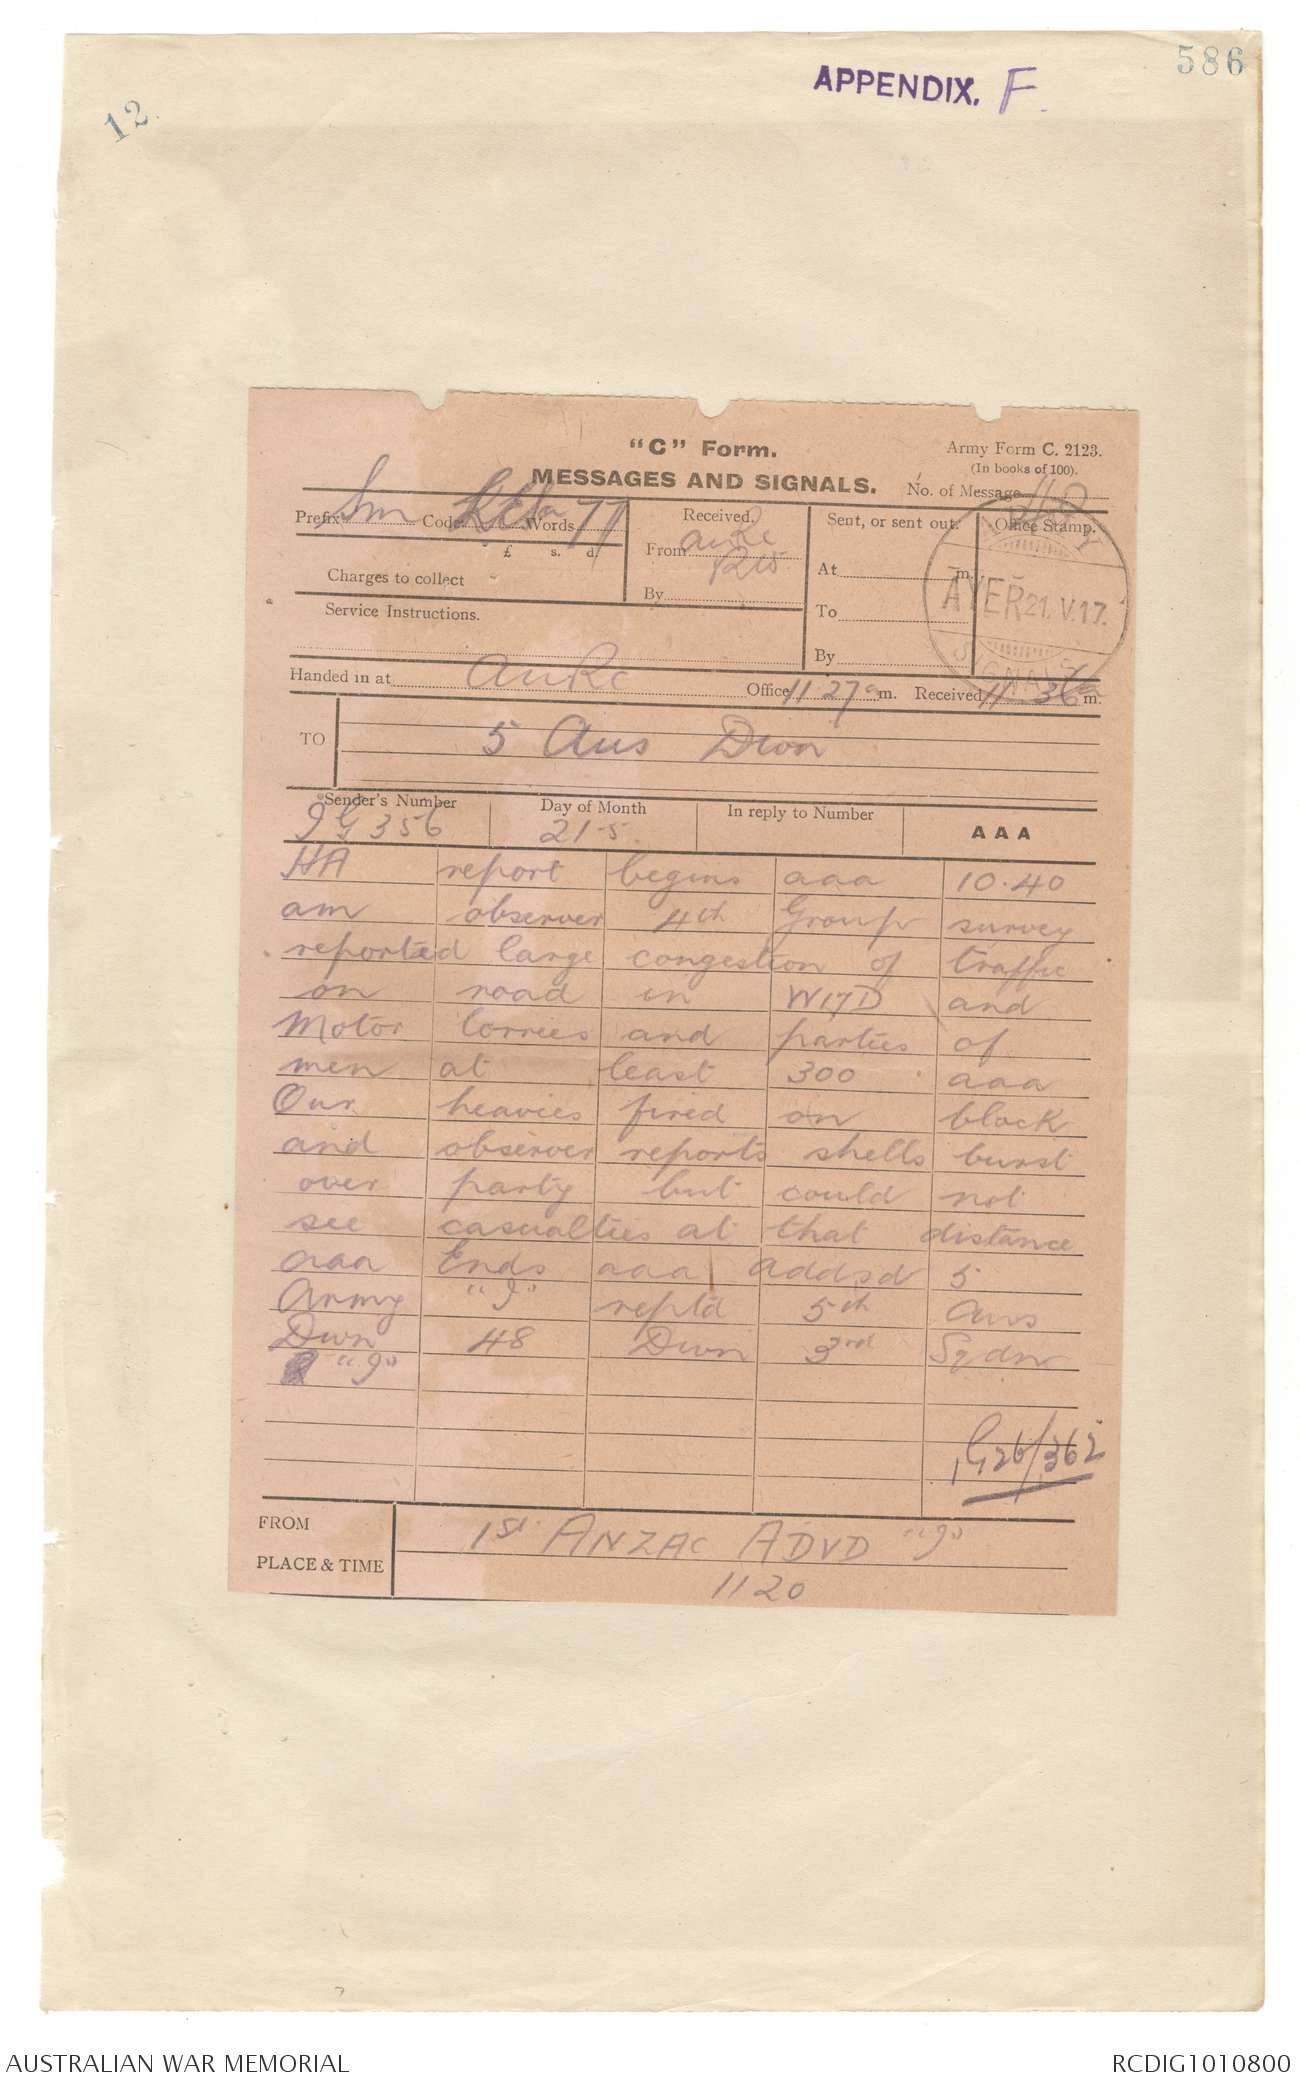 586
APPENDIX. F
12.
"C" Form.
Army Form C. 2123.
(In books of 100).
MESSAGES AND SIGNALS.
No. of Message
Prefix Sm Code Words 77
Received.
Sent, or sent out.
Office Stamp.
£ s. d.
From AuRc
Charges to collect
At m.
By
To
Service Instructions.
By
ARMY
AYER 21.V.17.
SIGNALS
Handed in at AuRc Office 11 27 a m. Received 11 36 a m.
TO 5 Aus Divn
Sender's Number
Day of Month
In reply to Number
AAA
IG 356
21-5.
HA report begins aaa 10.40
am observer 4th Group survey
reported large congestion of traffic
on road in W17D and
Motor lorries and parties of
men at least 300 aaa
Our heavies fired on block
and observer reports shells burst
over party but could not
see casualties at that distance
aaa Ends aaa addsd 5
Army "I" reptd 5th Aus
Divn 48 Divn 3rd Sqdn
"I"
IG26/362
FROM
PLACE & TIME
1st ANZAC ADVD "I"
1120
AUSTRALIAN WAR MEMORIAL
RCDIG1010800